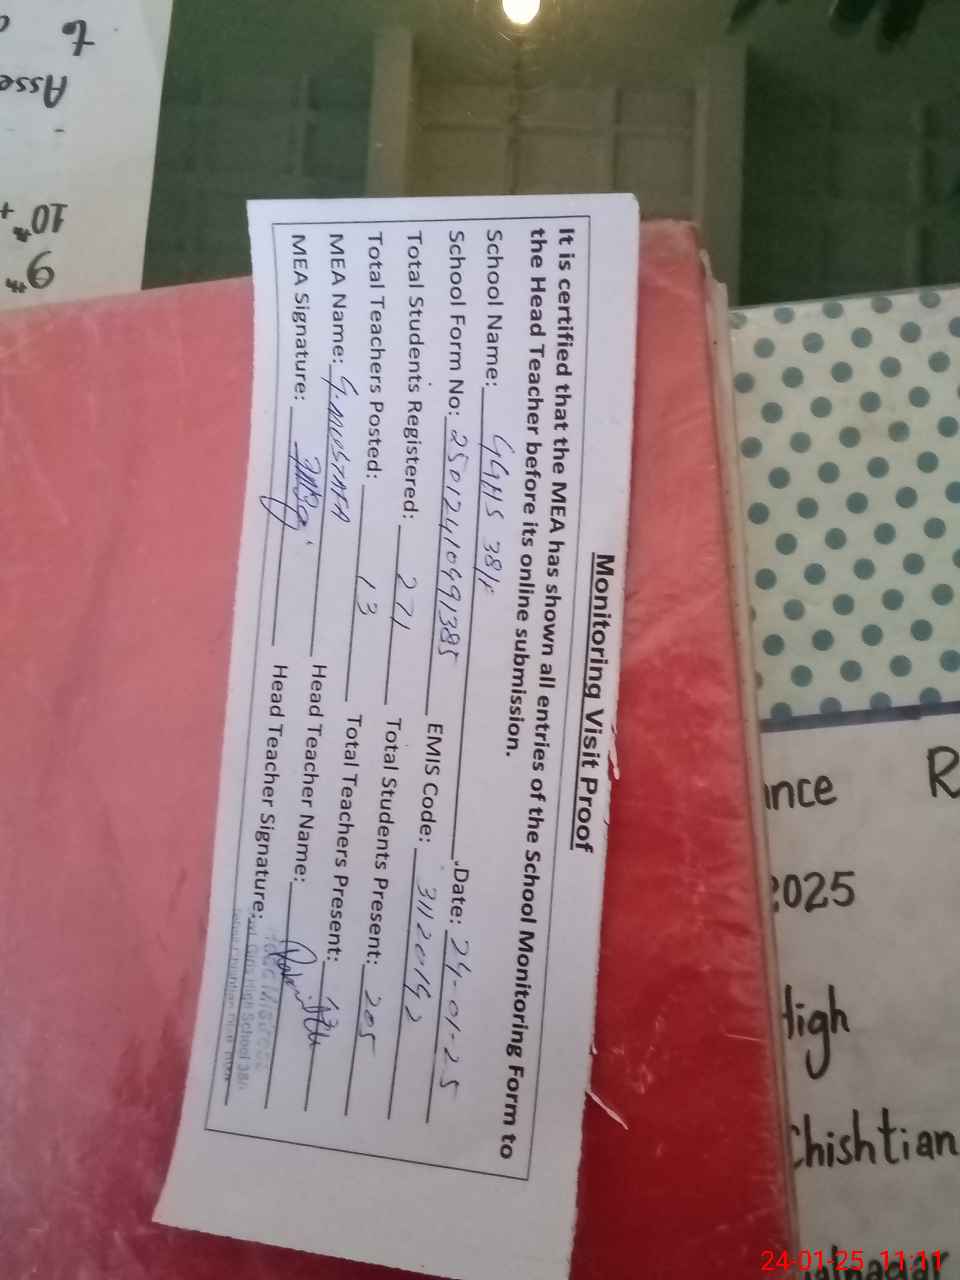 Monitoring Visit Proof
It is certified that the MEA has shown all entries of the School Monitoring Form to
the Head Teacher before its online submission.
School Name: GGHS 38/ Date: 24-01-25
School Form No: 25012410491385 EMIS Code: 31120142
Total Students Registered: 271 Total Students Present: 205
Total Teachers Posted: 13 Total Teachers Present:
MEA Name: G. MUSTAFA Head Teacher Name:
MEA Signature: Head Teacher Signature:
Girls High School 38/
Asse
10th +
9th
ance R
2025
High
Chishtian
24-01-25 11:11